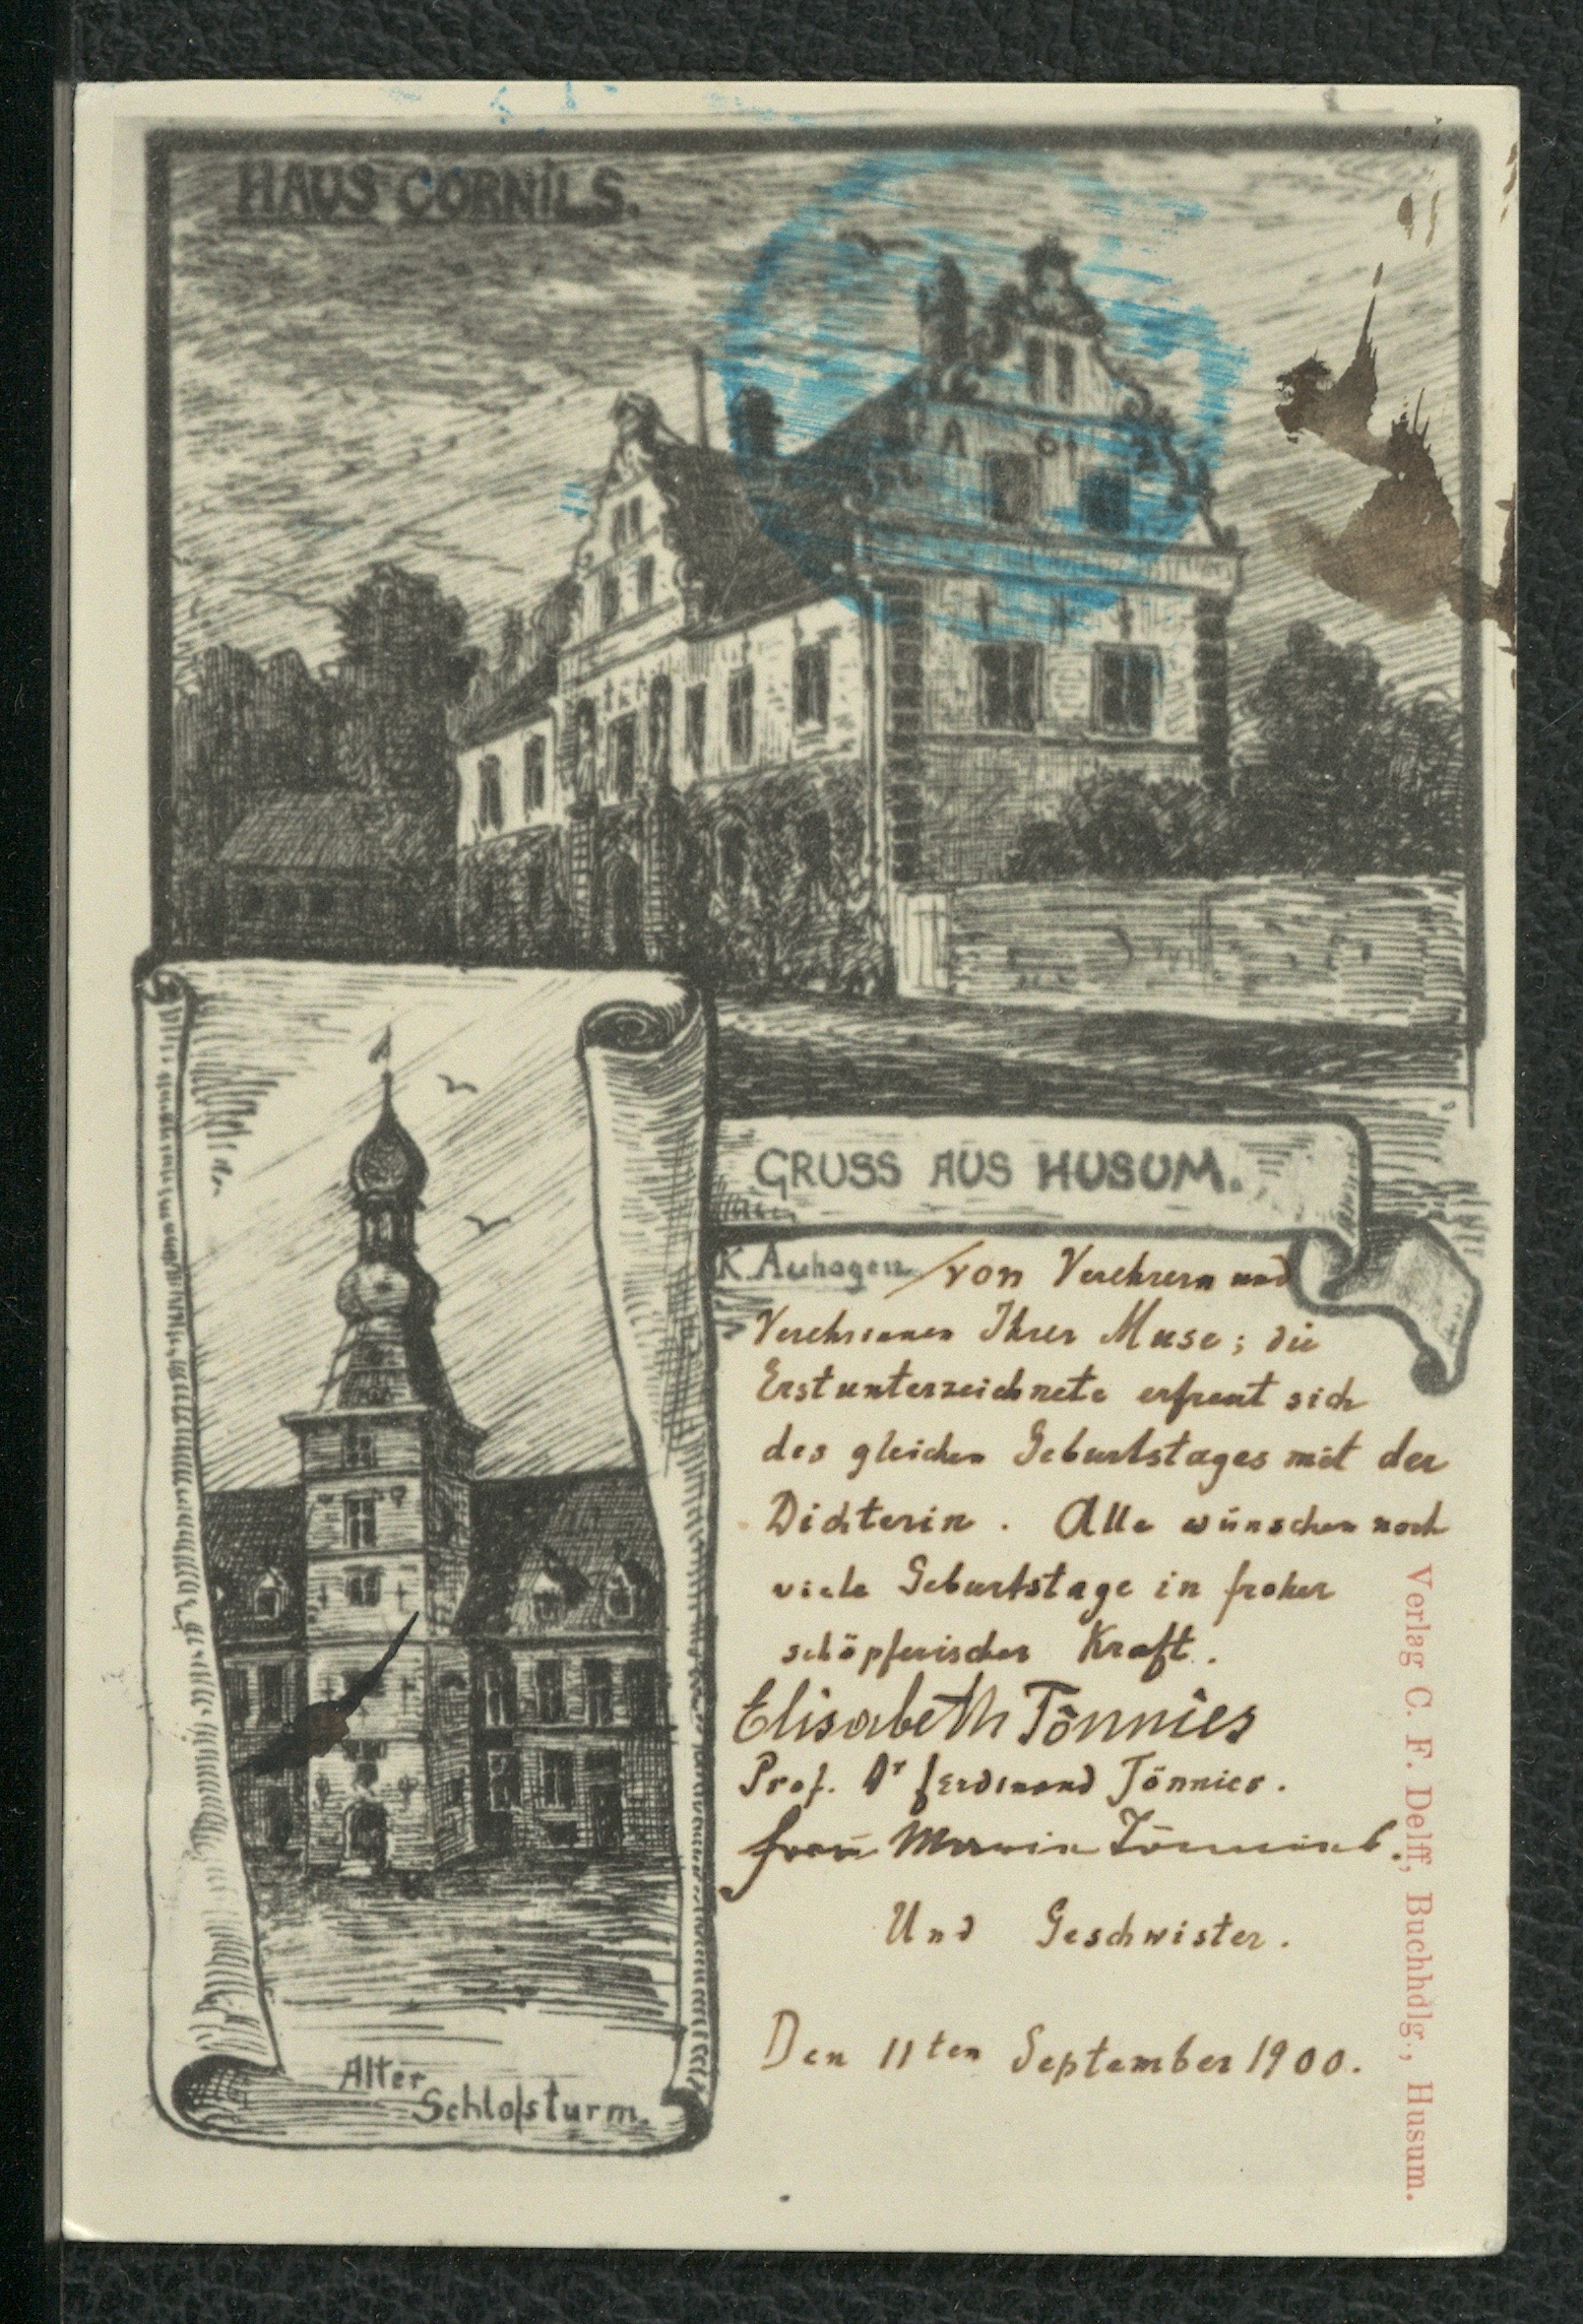 HAUS CORNILS.
A 61
GRUSS AUS HUSUM.
K. Auhagen
von Verehrern und
Verehrerinnen Ihrer Muse; die
Erstunterzeichnete erfreut sich
des gleichen Geburtstages mit der
Dichterin. Alle wünschen noch
viele Geburtstage in froher
schöpferischer Kraft.
Elisabeth Tönnies
Prof. Dr Ferdinand Tönnies.
Frau Marie Tönnies.
Und Geschwister.
Den 11ten September 1900.
Alter
Schloſsturm.
Verlag C. F. Delff, Buchhdlg., Husum.